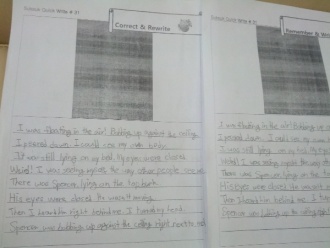 Correct & Rewrite
I was floating in the air! Bobbing up against the ceiling.
I peered down. I could see my own body.
It was still lying on my bed. My eyes were closed.
Weird! I was seeing myself the way other people see me.
There was Spencer lying on the top bunk.
His eyes were closed. He wasn't moving.
Then I heard him right behind me. I turned
Spencer was bobbing up against the ceiling right next to me!
Remember & Wri
I was floating in the air! Bobbing up against
I peered down. I could see my own
I was still lying on my bed. My eyes
Weird! I was seeing myself the way
There was Spencer lying on the top
His eyes were closed. He wasn't
Then I heard him behind me. I
Spencer was bobbing up against the ceiling